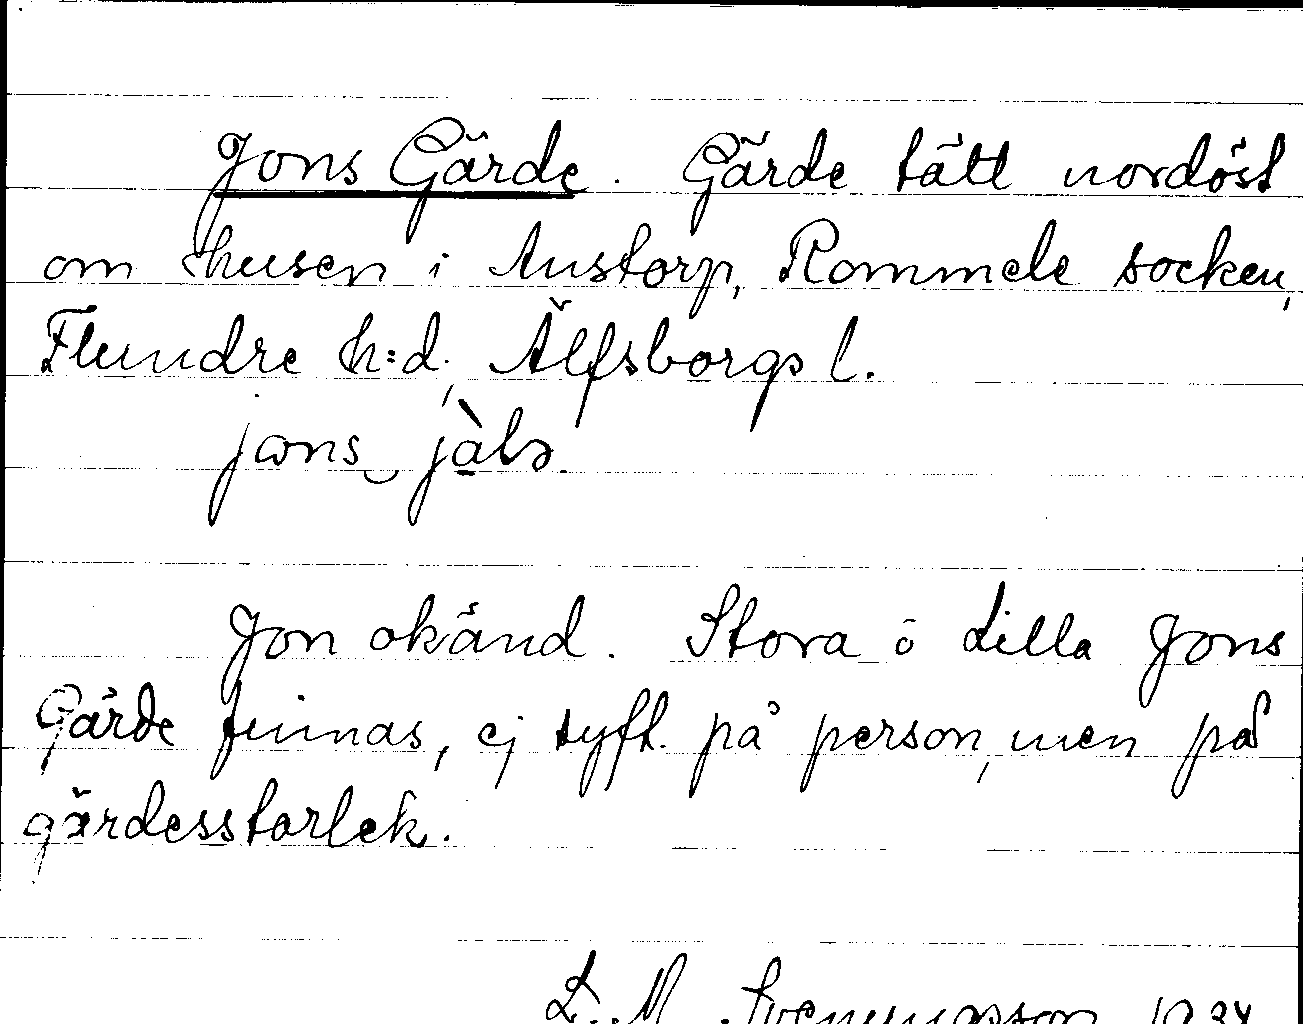 Jons Gärde. Gärde tätt nordöst
om husen i Anstorp, Rommele socken,
Flundre h:d, Älfsborgs l.
jɷns jàlɘ.
Jon okänd. Stora ō Lilla Jons
Gärde finnas, ej syft. på person, men på
gärdesstorlek.
L. M. Svenungsson 1934